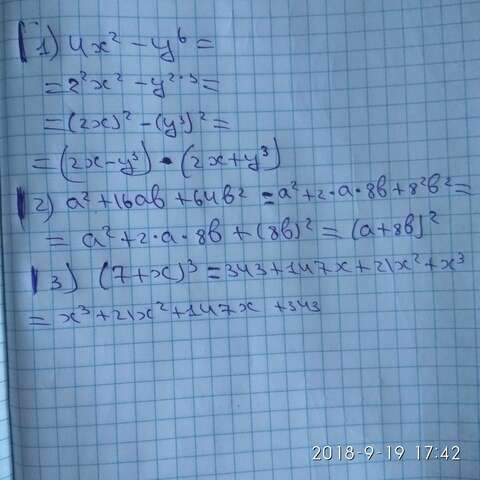 1) 4x² - y⁶ =
= 2²x² - y²·³ =
= (2x)² - (y³)² =
= (2x - y³) · (2x + y³)
2) a² + 16ab + 64b² = a² + 2·a·8b + 8²b² =
= a² + 2·a·8b + (8b)² = (a + 8b)²
3) (7 + x)³ = 343 + 147x + 21x² + x³
= x³ + 21x² + 147x + 343
2018-9-19 17:42